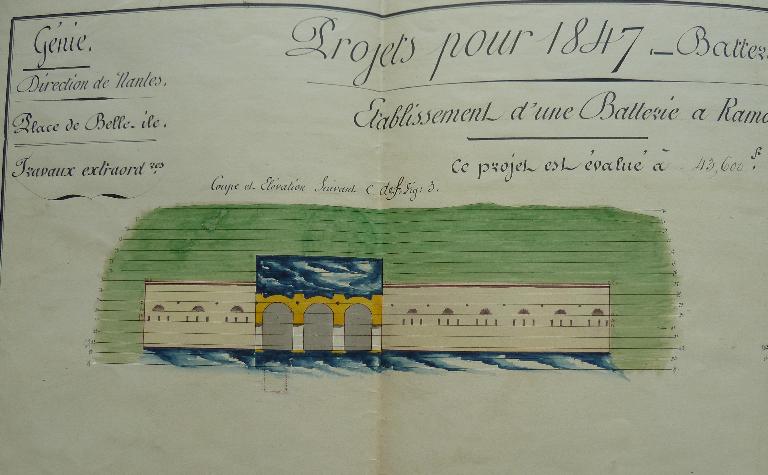 Génie.
Direction de Nantes.
Place de Belle-ile.
Travaux extraord.res
Projets pour 1847. _ Batter
Etablissement d'une Batterie a Ram
Ce projet est évalué à 43,600 f.
Coupe et Elévation Suivant c def. Fig: 3.